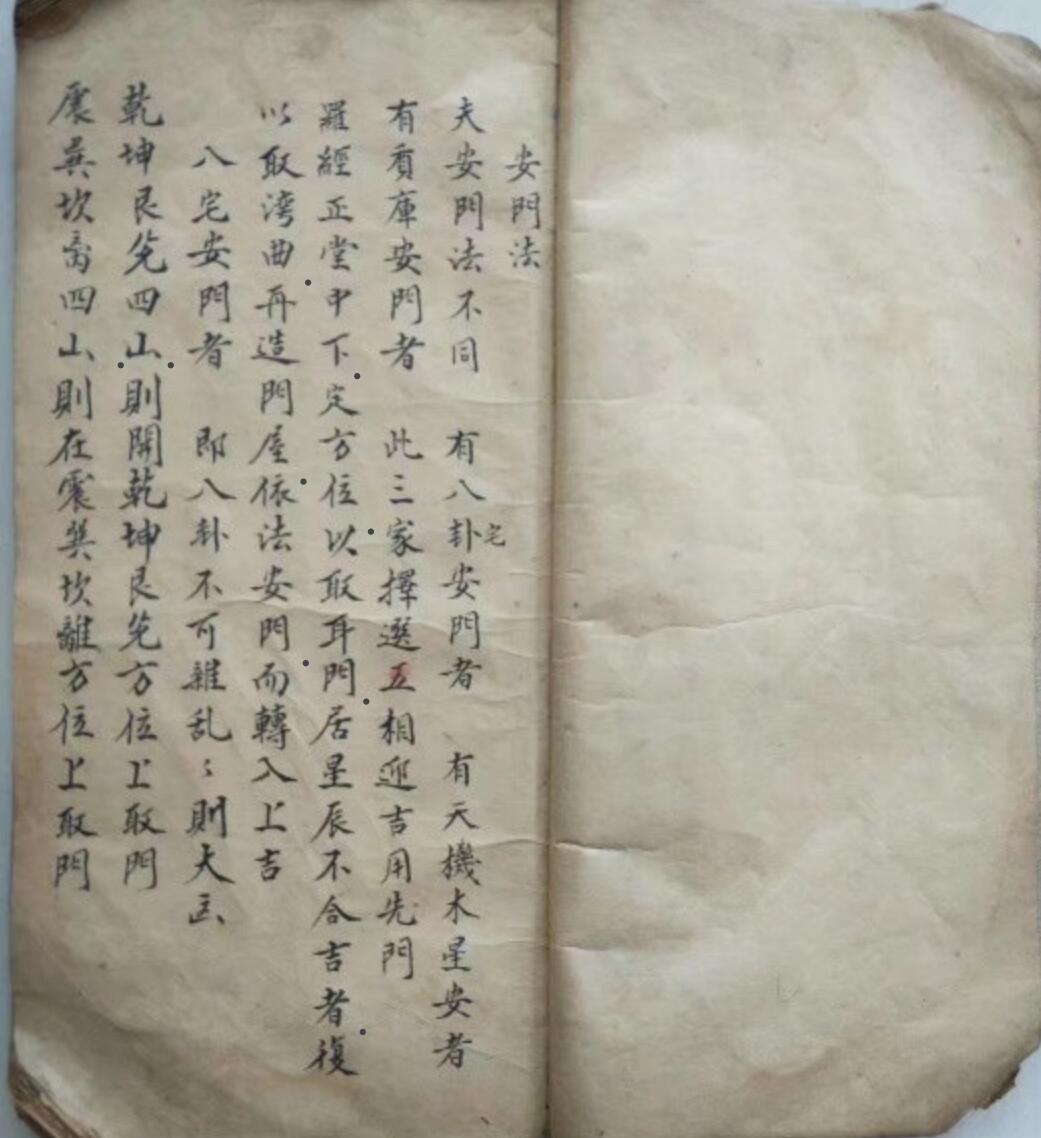 安門法
夫安門法不同 有八卦宅安門者 有天機木星安者
有賁庫安門者 此三家擇選互相迎吉用先門
羅經正堂中下定方位以取耳門居星辰不合吉者復
以取湾曲再造門屋依法安門而轉入上吉
八宅安門者 即八卦不可雜乱〻則大凶
乾坤艮兌四山則開乾坤艮兌方位上取門
震巽坎离四山則在震巽坎離方位上取門